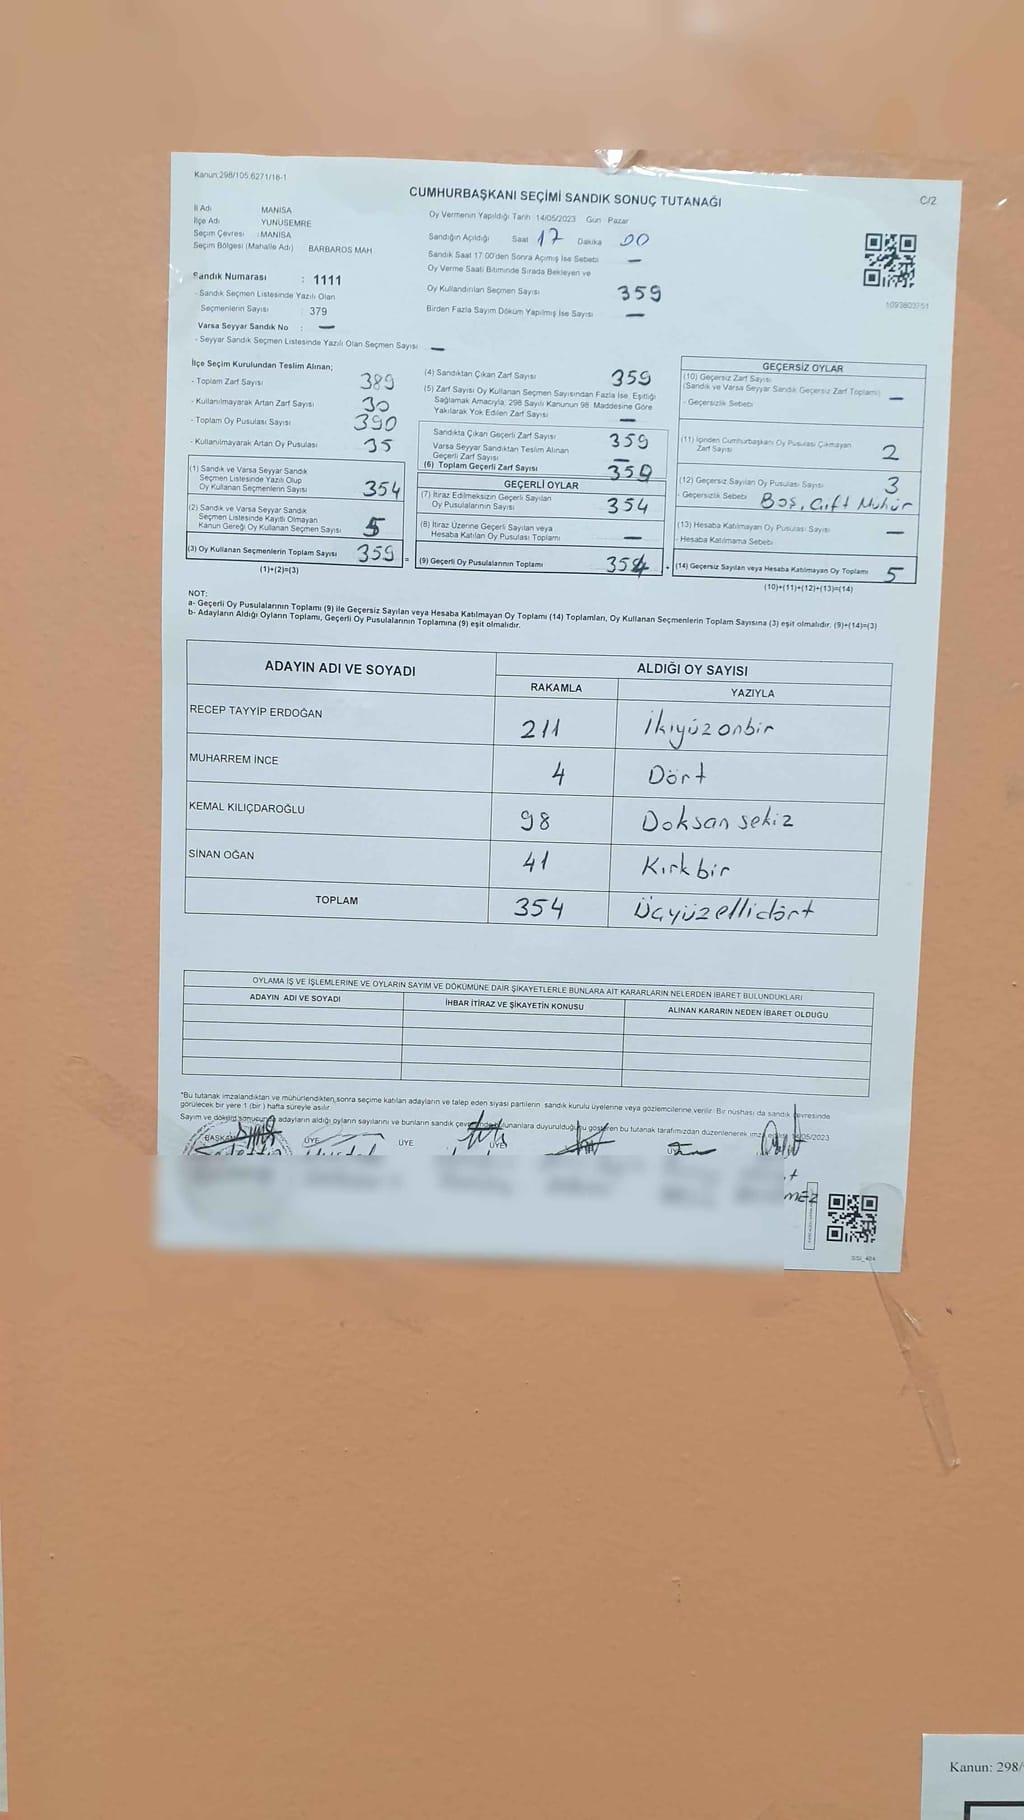 Kanun:298/105.6271/16-1
CUMHURBAŞKANI SEÇİMİ SANDIK SONUÇ TUTANAĞI
C/2
İl Adı MANİSA
İlçe Adı YUNUSEMRE
Seçim Çevresi : MANİSA
Seçim Bölgesi (Mahalle Adı) : BARBAROS MAH
Sandık Numarası : 1111
- Sandık Seçmen Listesinde Yazılı Olan
Seçmenlerin Sayısı : 379
Varsa Seyyar Sandık No : —
- Seyyar Sandık Seçmen Listesinde Yazılı Olan Seçmen Sayısı : —
Oy Vermenin Yapıldığı Tarih 14/05/2023 Gün Pazar
Sandığın Açıldığı Saat 17 Dakika 00
Sandık Saat 17:00'den Sonra Açımış İse Sebebi —
Oy Verme Saati Bitiminde Sırada Bekleyen ve
Oy Kullandırılan Seçmen Sayısı 359
Birden Fazla Sayım Döküm Yapılmış İse Sayısı —
1093803751
İlçe Seçim Kurulundan Teslim Alınan;
- Toplam Zarf Sayısı 389
- Kullanılmayarak Artan Zarf Sayısı 30
- Toplam Oy Pusulası Sayısı 390
- Kullanılmayarak Artan Oy Pusulası 35
(1) Sandık ve Varsa Seyyar Sandık
Seçmen Listesinde Yazılı Olup
Oy Kullanan Seçmenlerin Sayısı 354
(2) Sandık ve Varsa Seyyar Sandık
Seçmen Listesinde Kayıtlı Olmayan
Kanun Gereği Oy Kullanan Seçmen Sayısı 5
(3) Oy Kullanan Seçmenlerin Toplam Sayısı 359 =
(1)+(2)=(3)
(4) Sandıktan Çıkan Zarf Sayısı 359
(5) Zarf Sayısı Oy Kullanan Seçmen Sayısından Fazla İse, Eşitliği
Sağlamak Amacıyla, 298 Sayılı Kanunun 98. Maddesine Göre
Yakılarak Yok Edilen Zarf Sayısı —
Sandıkta Çıkan Geçerli Zarf Sayısı 359
Varsa Seyyar Sandıktan Teslim Alınan
Geçerli Zarf Sayısı —
(6) Toplam Geçerli Zarf Sayısı 359
GEÇERLİ OYLAR
(7) İtiraz Edilmeksizin Geçerli Sayılan
Oy Pusulalarının Sayısı 354
(8) İtiraz Üzerine Geçerli Sayılan veya
Hesaba Katılan Oy Pusulası Toplamı —
(9) Geçerli Oy Pusulalarının Toplamı 354 +
GEÇERSİZ OYLAR
(10) Geçersiz Zarf Sayısı
(Sandık ve Varsa Seyyar Sandık Geçersiz Zarf Toplamı) —
- Geçersizlik Sebebi
(11) İçinden Cumhurbaşkanı Oy Pusulası Çıkmayan
Zarf Sayısı 2
(12) Geçersiz Sayılan Oy Pusulası Sayısı 3
- Geçersizlik Sebebi Boş, Çift Mühür
(13) Hesaba Katılmayan Oy Pusulası Sayısı —
- Hesaba Katılmama Sebebi
(14) Geçersiz Sayılan veya Hesaba Katılmayan Oy Toplamı 5
(10)+(11)+(12)+(13)=(14)
NOT:
a- Geçerli Oy Pusulalarının Toplamı (9) ile Geçersiz Sayılan veya Hesaba Katılmayan Oy Toplamı (14) Toplamları, Oy Kullanan Seçmenlerin Toplam Sayısına (3) eşit olmalıdır. (9)+(14)=(3)
b- Adayların Aldığı Oyların Toplamı, Geçerli Oy Pusulalarının Toplamına (9) eşit olmalıdır.
ADAYIN ADI VE SOYADI ALDIĞI OY SAYISI
RAKAMLA YAZIYLA
RECEP TAYYİP ERDOĞAN 211 İkiyüz onbir
MUHARREM İNCE 4 Dört
KEMAL KILIÇDAROĞLU 98 Doksan sekiz
SİNAN OĞAN 41 Kırk bir
TOPLAM 354 Üçyüz ellidört
OYLAMA İŞ VE İŞLEMLERİNE VE OYLARIN SAYIM VE DÖKÜMÜNE DAİR ŞİKAYETLERLE BUNLARA AİT KARARLARIN NELERDEN İBARET BULUNDUKLARI
ADAYIN ADI VE SOYADI İHBAR İTİRAZ VE ŞİKAYETİN KONUSU ALINAN KARARIN NEDEN İBARET OLDUĞU
*Bu tutanak imzalandıktan ve mühürlendikten sonra seçime katılan adayların ve talep eden siyasi partilerin sandık kurulu üyelerine veya gözlemcilerine verilir. Bir nüshası da sandık çevresinde
görülecek bir yere 1 (bir ) hafta süreyle asılır.
Sayım ve döküm sonucunda adayların aldığı oyların sayılarını ve bunların sandık çevresinde bulunanlara duyurulduğunu gösteren bu tutanak tarafımızdan düzenlenerek /05/2023
BAŞKAN ÜYE ÜYE ÜYE
MEZ
Kanun: 298/